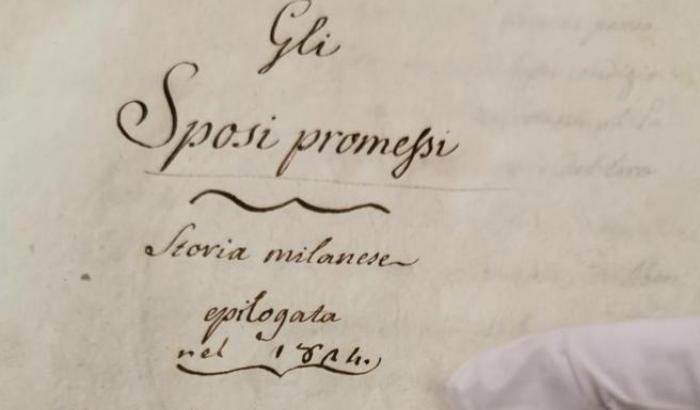 Gli
Sposi promessi
Storia milanese
epilogata
nel 1824.